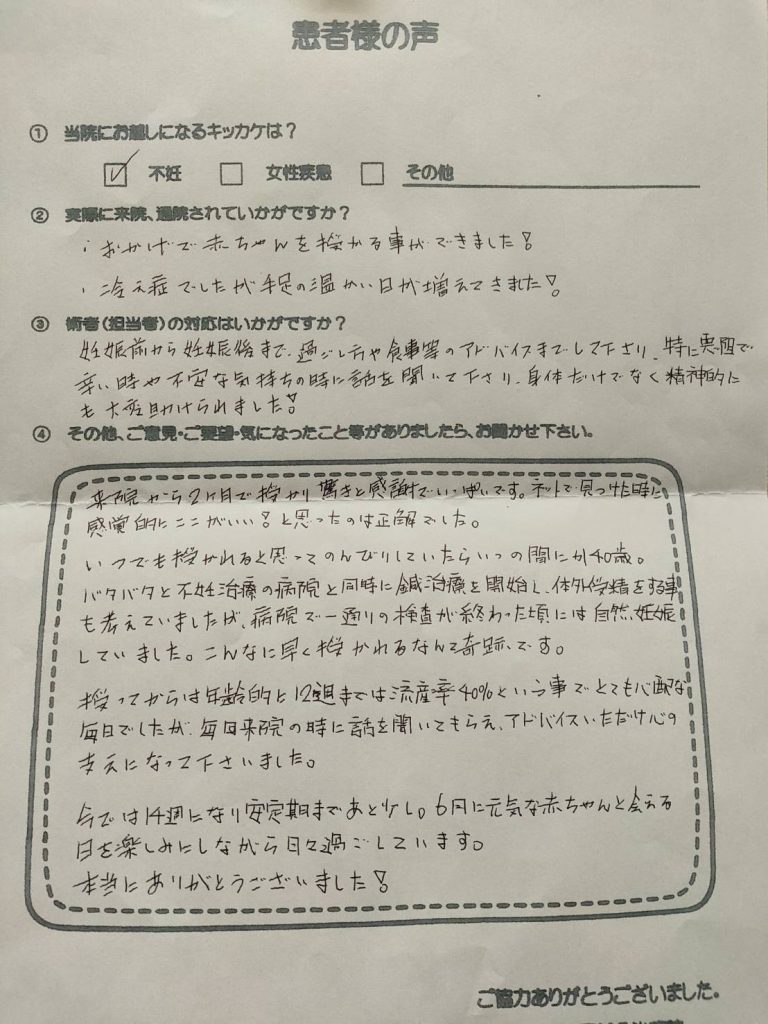 患者様の声
① 当院にお越しになるキッカケは？
☑ 不妊 □ 女性疾患 □ その他
② 実際に来院、通院されていかがですか？
・おかげで赤ちゃんを授かる事ができました！
・冷え症でしたが手足の温かい日が増えてきました！
③ 術者（担当者）の対応はいかがですか？
妊娠前から妊娠後まで、過ごし方や食事等のアドバイスまでして下さり、特に悪阻で
辛い時や不安な気持ちの時に話を聞いて下さり、身体だけでなく精神的に
も大変助けられました！
④ その他、ご意見・ご要望・気になったこと等がありましたら、お聞かせ下さい。
来院から2ヶ月で授かり驚きと感謝でいっぱいです。ネットで見つけた時に
感覚的にここがいい！と思ったのは正解でした。
いつでも授かれると思ってのんびりしていたらいつの間にか40歳。
バタバタと不妊治療の病院と同時に鍼治療を開始し、体外受精をする事
も考えていましたが、病院で一通りの検査が終わった頃には自然妊娠
していました。こんなに早く授かれるなんて奇跡です。
授ってからは年齢的と12週までは流産率40%という事でとても心配な
毎日でしたが、毎回来院の時に話を聞いてもらえ、アドバイスいただけ心の
支えになって下さいました。
今では14週になり安定期まであと少し。6月に元気な赤ちゃんと会える
日を楽しみにしながら日々過ごしています。
本当にありがとうございました！
ご協力ありがとうございました。